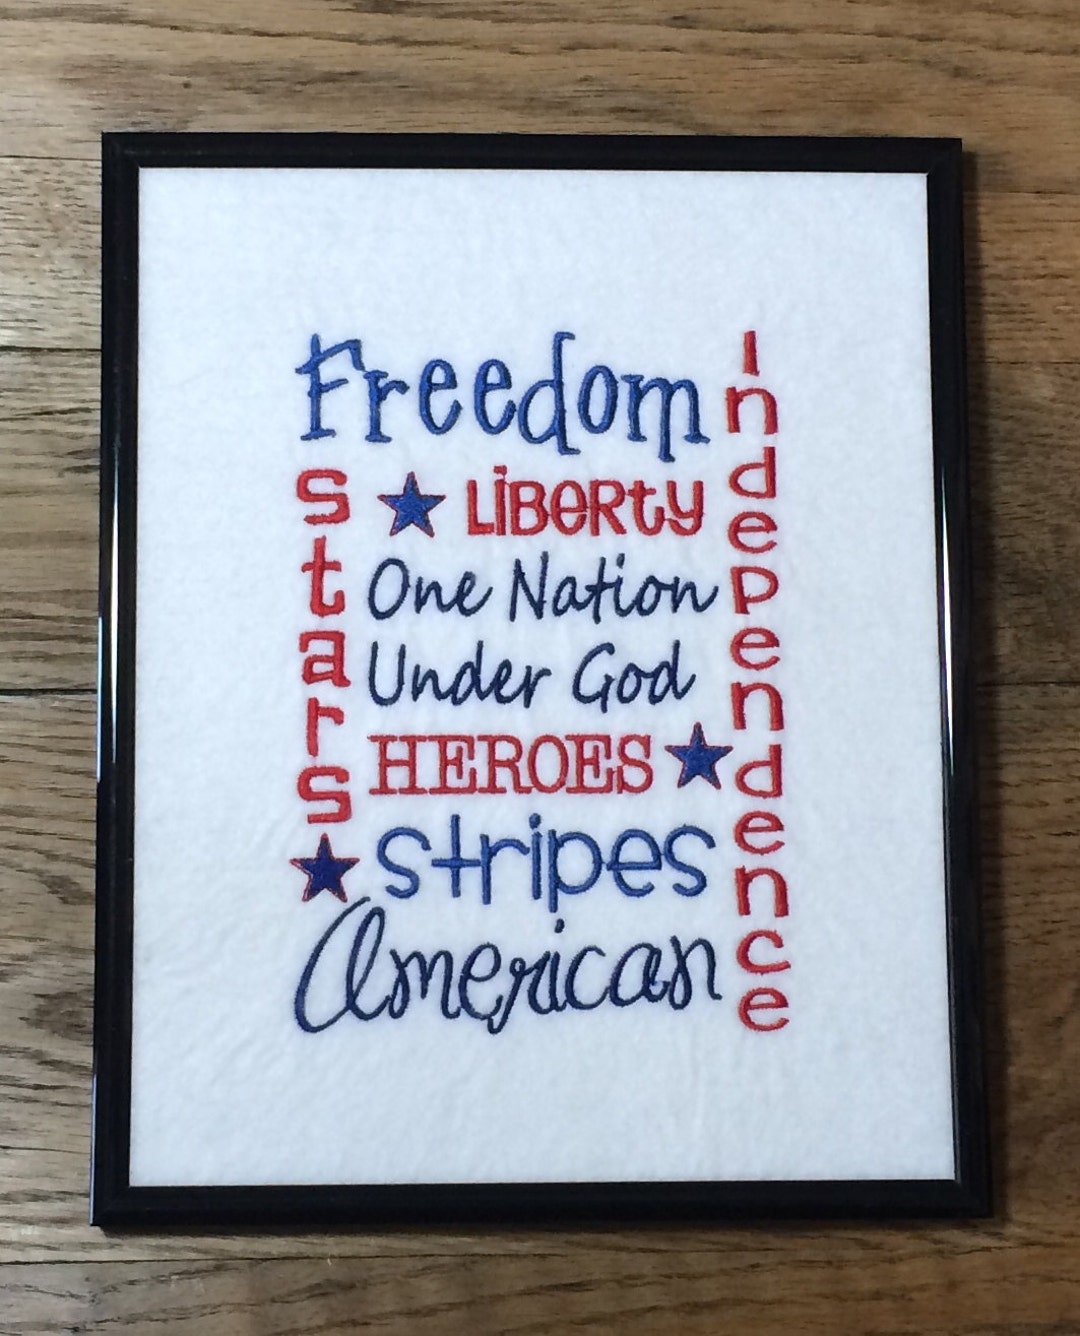 Freedom
Independence
Stars
LiBeRty
One Nation
Under God
HEROES
Stripes
American